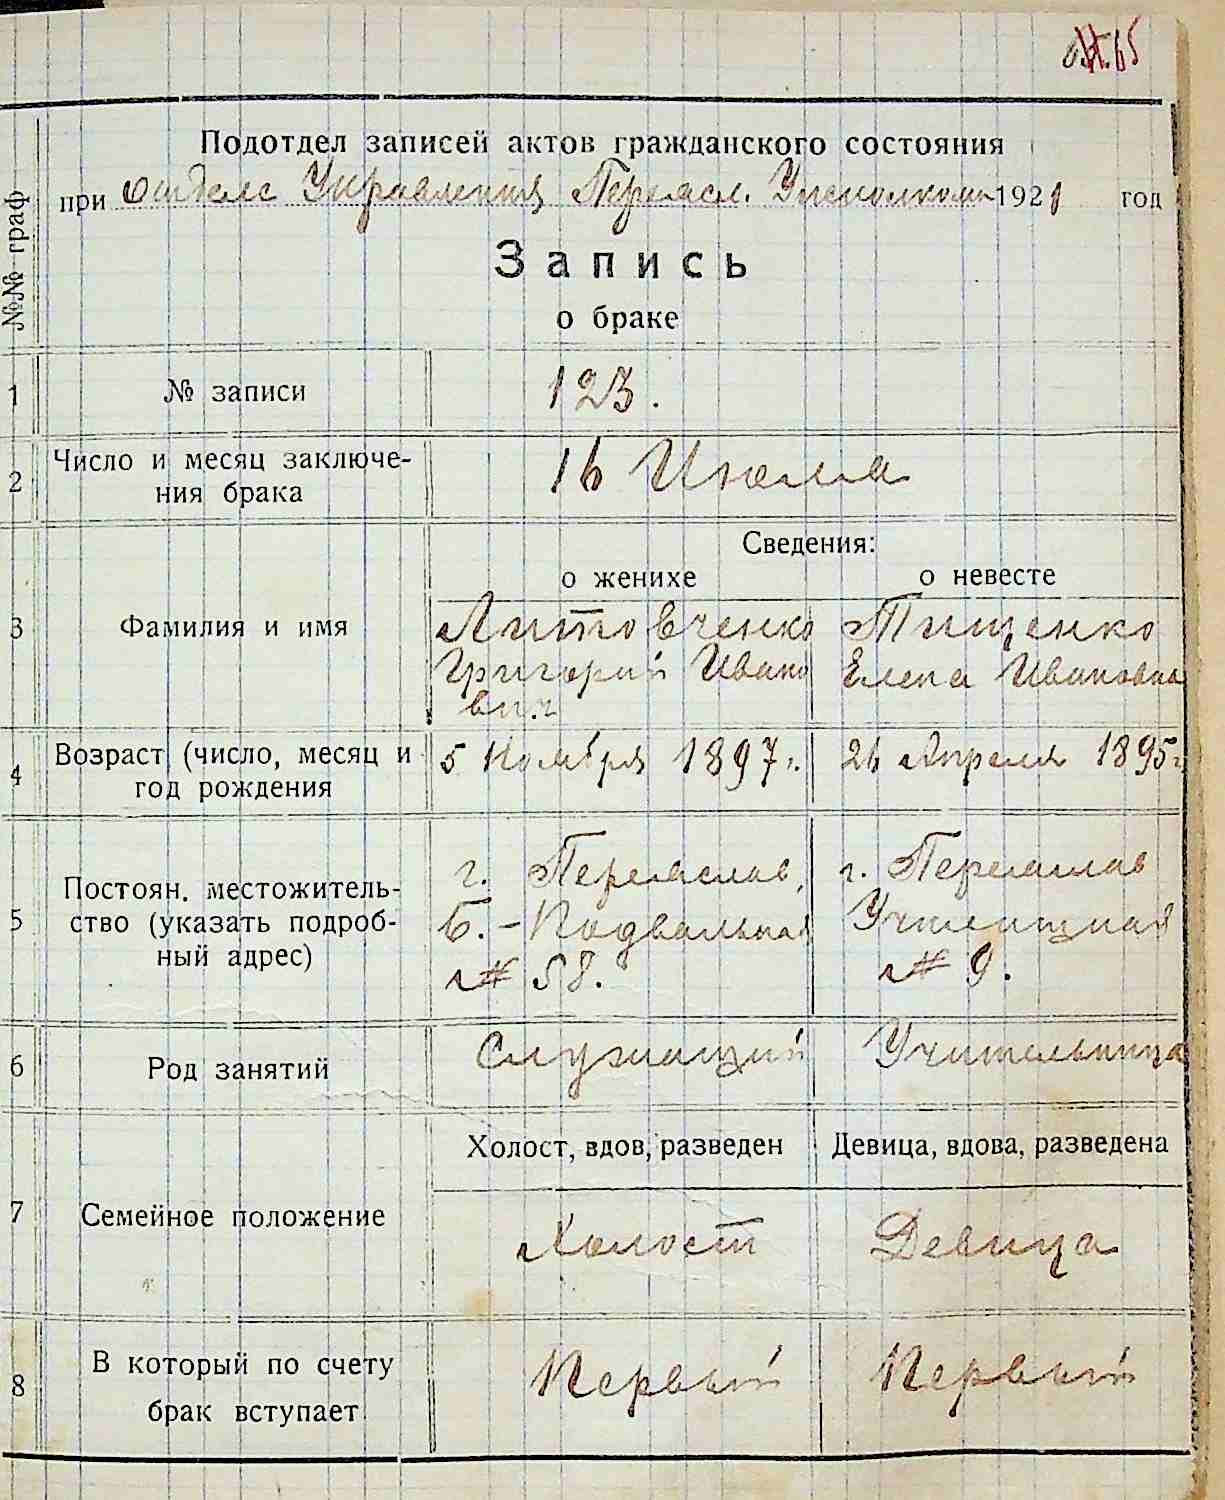 65
Подотдел записей актов гражданского состояния
при Отделе Управления Переясл. Уисполкома 1921 год
№№ граф
Запись
о браке
1 № записи 123.
2 Число и месяц заключе-
ния брака 16 Июля
Сведения:
о женихе о невесте
3 Фамилия и имя Литовченко Тищенко
Григорий Ивано Елена Ивановна
вич
4 Возраст (число, месяц и 5 Ноября 1897 г. 26 Апреля 1895 г
год рождения
г. Переяслав, г. Переяслав
5 Постоян. местожитель-
ство (указать подроб- Б.-Подвальная Училищная
ный адрес) № 58. № 9.
6 Род занятий Служащий Учительница
Холост, вдов, разведен Девица, вдова, разведена
7 Семейное положение Холост Девица
8 В который по счету Первый Первый
брак вступает